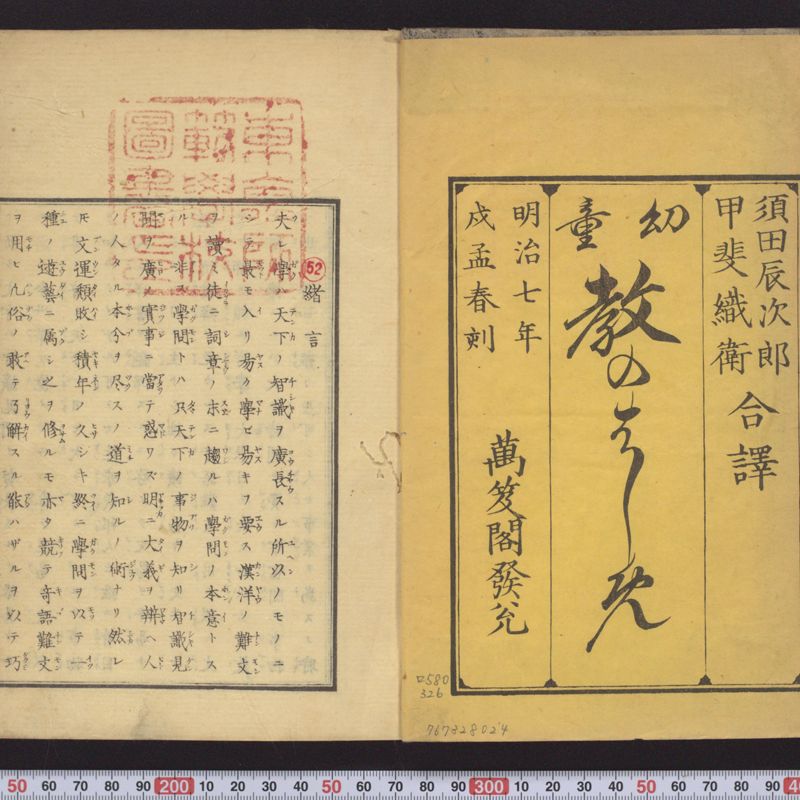 須田辰次郎
甲斐織衛
合譯
幼童
教のはしめ
明治七年
戍孟春刻
萬笈閣發兌
口580
326
767328024
東京師
範學校
圖書之印
52
緒言
夫レ學ハ天下ノ智識ヲ廣長スル所以ノモノニ
シテ最モ入リ易ク學ビ易キヲ要ス漢洋ノ難文
ヲ讀ミ徒ニ詞章ノ末ニ趨ルハ學問ノ本意トス
ルニ非ス學問トハ只天下ノ事物ヲ知リ智識見
聞ヲ廣メ實事ニ當テ惑ハス明ニ大義ヲ辨ヘ人
ノ人タル本分ヲ尽スノ道ヲ知ルノ術ナリ然レ
𪜈文運頽敗シ積年ノ久シキ終ニ學問ヲ以テ一
種ノ遊藝ニ属シ之ヲ修ルモ亦タ競テ奇語難文
ヲ用ヒ凡俗ノ敢テ了解スル能ハザルヲ以テ巧
50 60 70 80 90 200 10 20 30 40 50 60 70 80 90 300 10 20 30 40 50 60 70 80 90